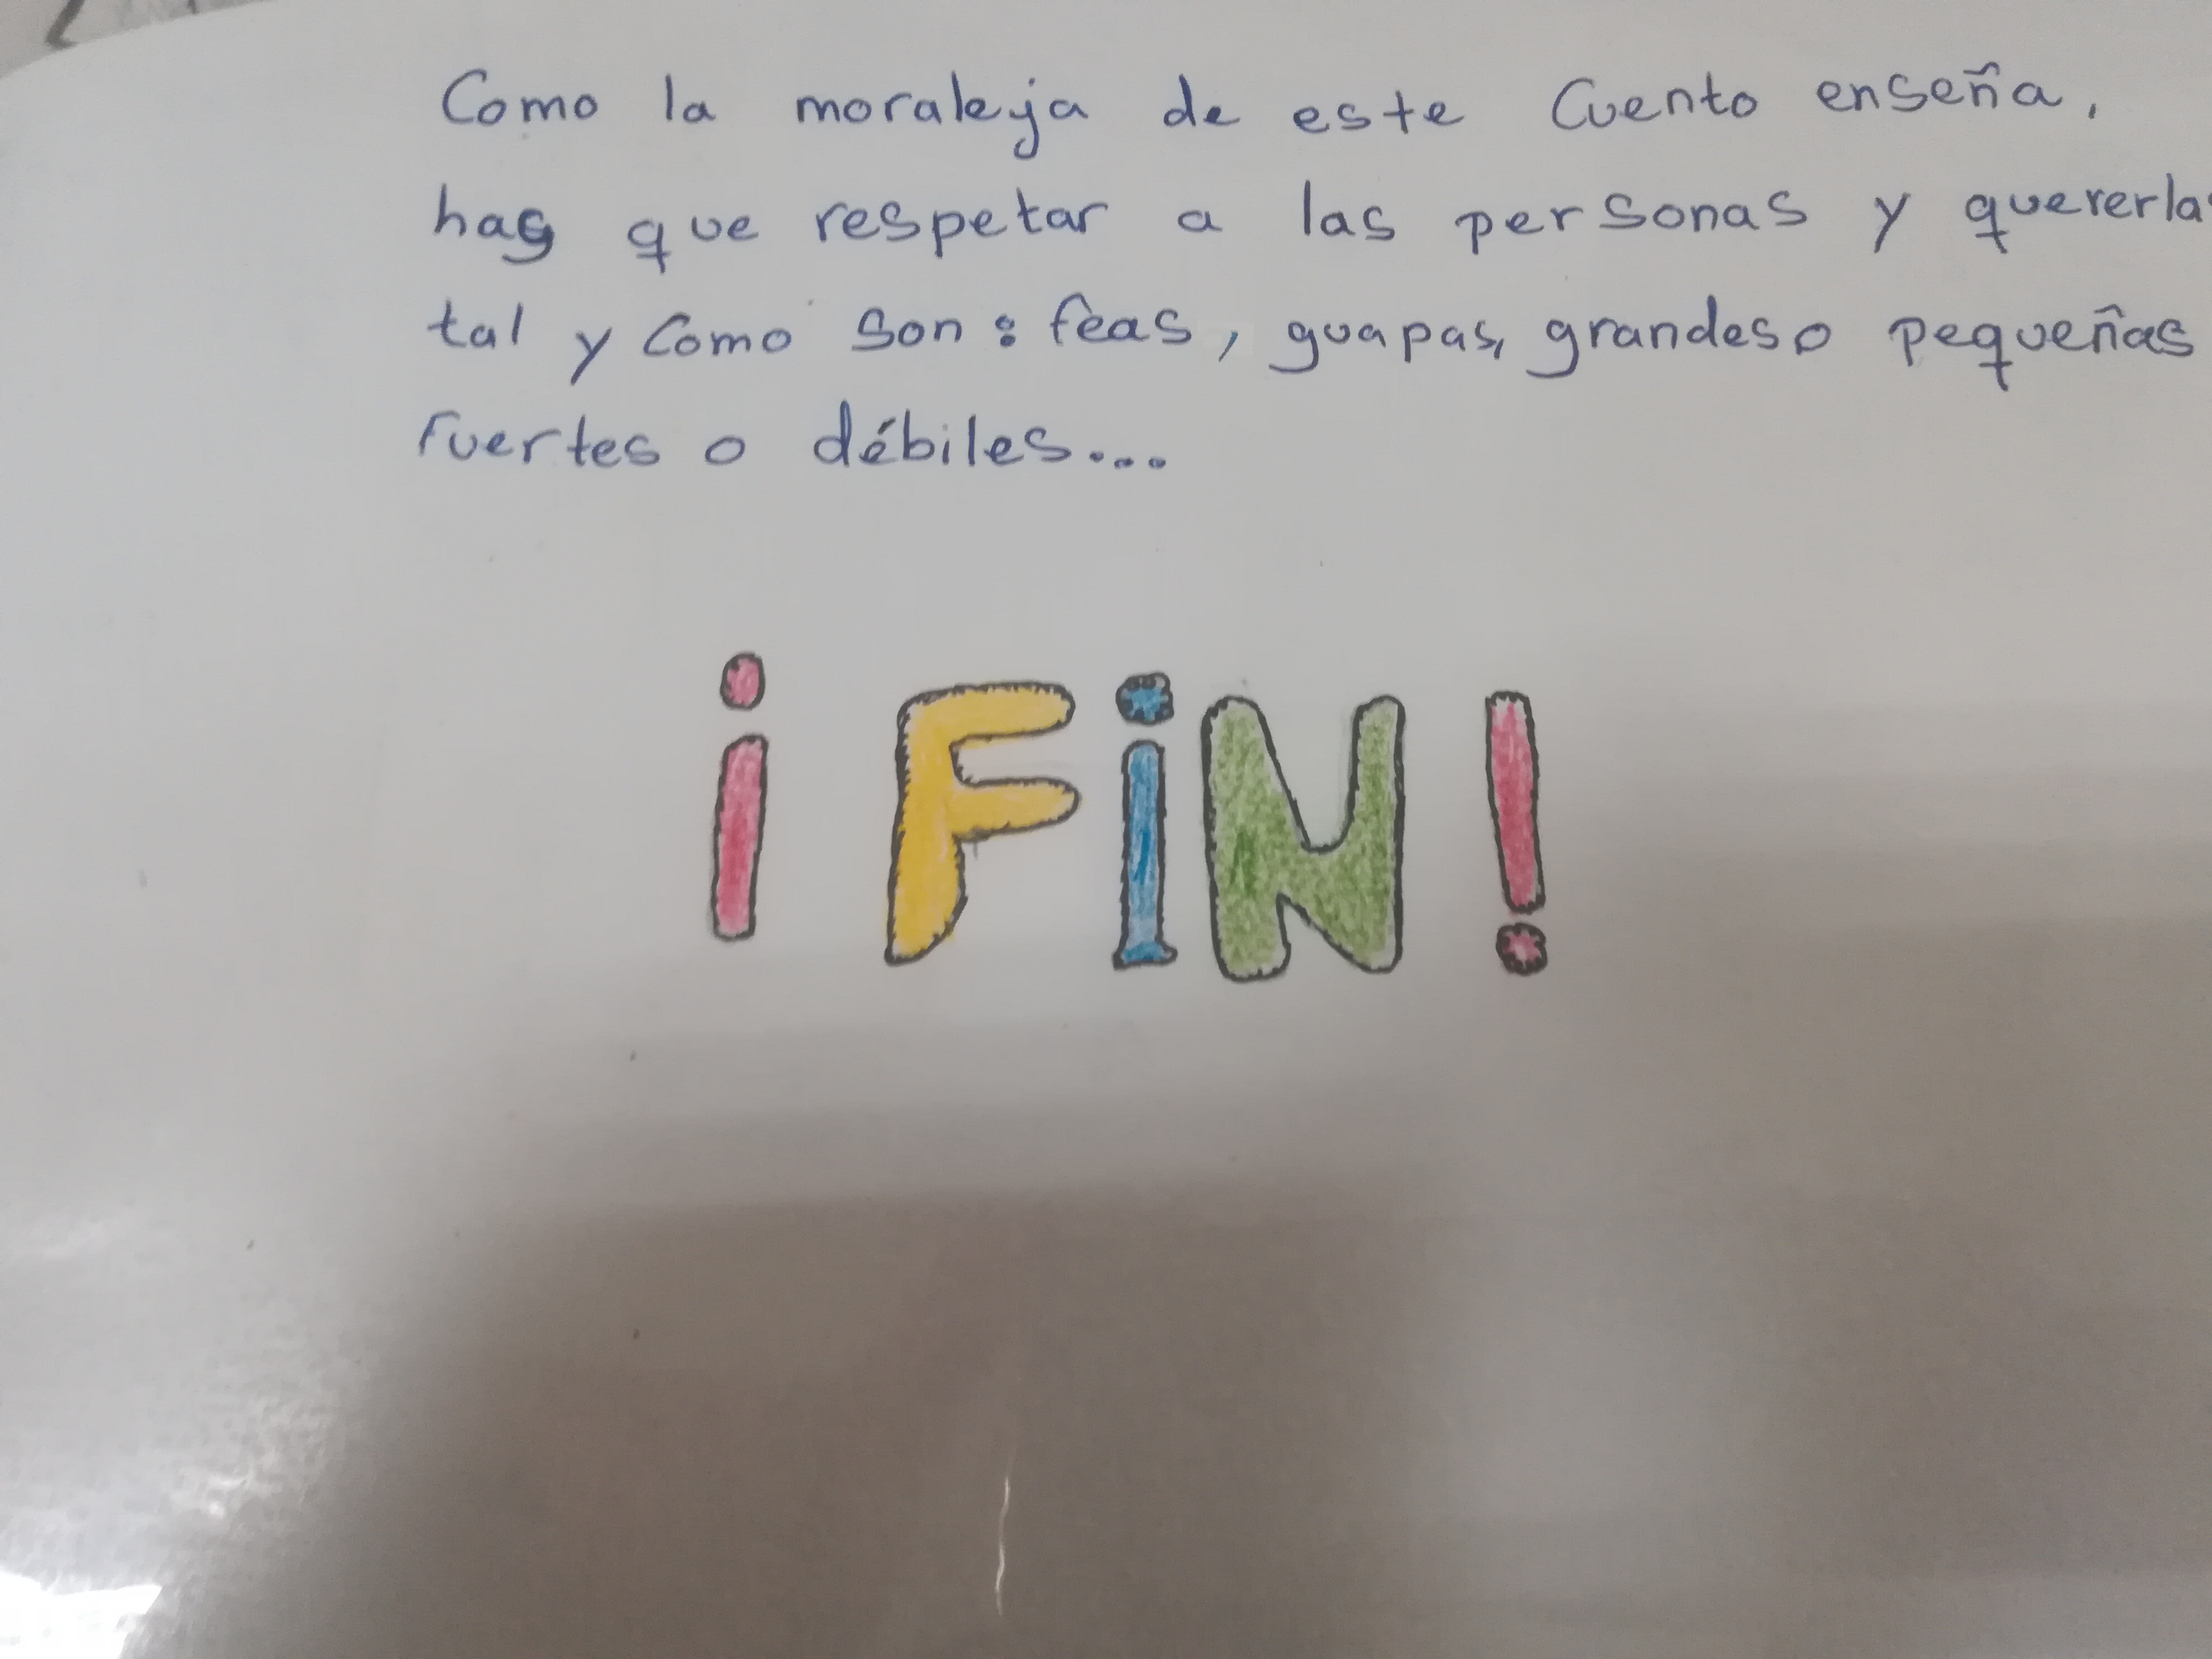 Como la moraleja de este Cuento enseña,
hay que respetar a las personas y quererlas
tal y Como son: feas, guapas, grandes o pequeñas
fuertes o débiles...
¡FiN!